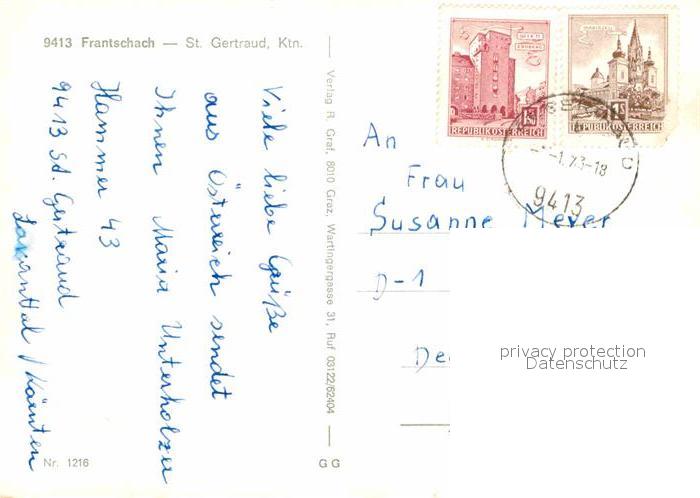 9413 Frantschach — St. Gertraud, Ktn.
Viele liebe Grüße
aus Österreich sendet
Ihnen Maria Unterholzer
Hammer 43
9413 St. Gertraud
Lavanttal / Kärnten
Nr. 1216
Verlag R. Graf, 8010 Graz, Wartingergasse 31, Ruf 03122/62404
G G
WIEN
ERDBERG
1.50
REPUBLIK ÖSTERREICH
MARIAZELL
1S
REPUBLIK ÖSTERREICH
1.73-18
C
9413
An
Frau
Susanne Meyer
D-1
privacy protection
Datenschutz